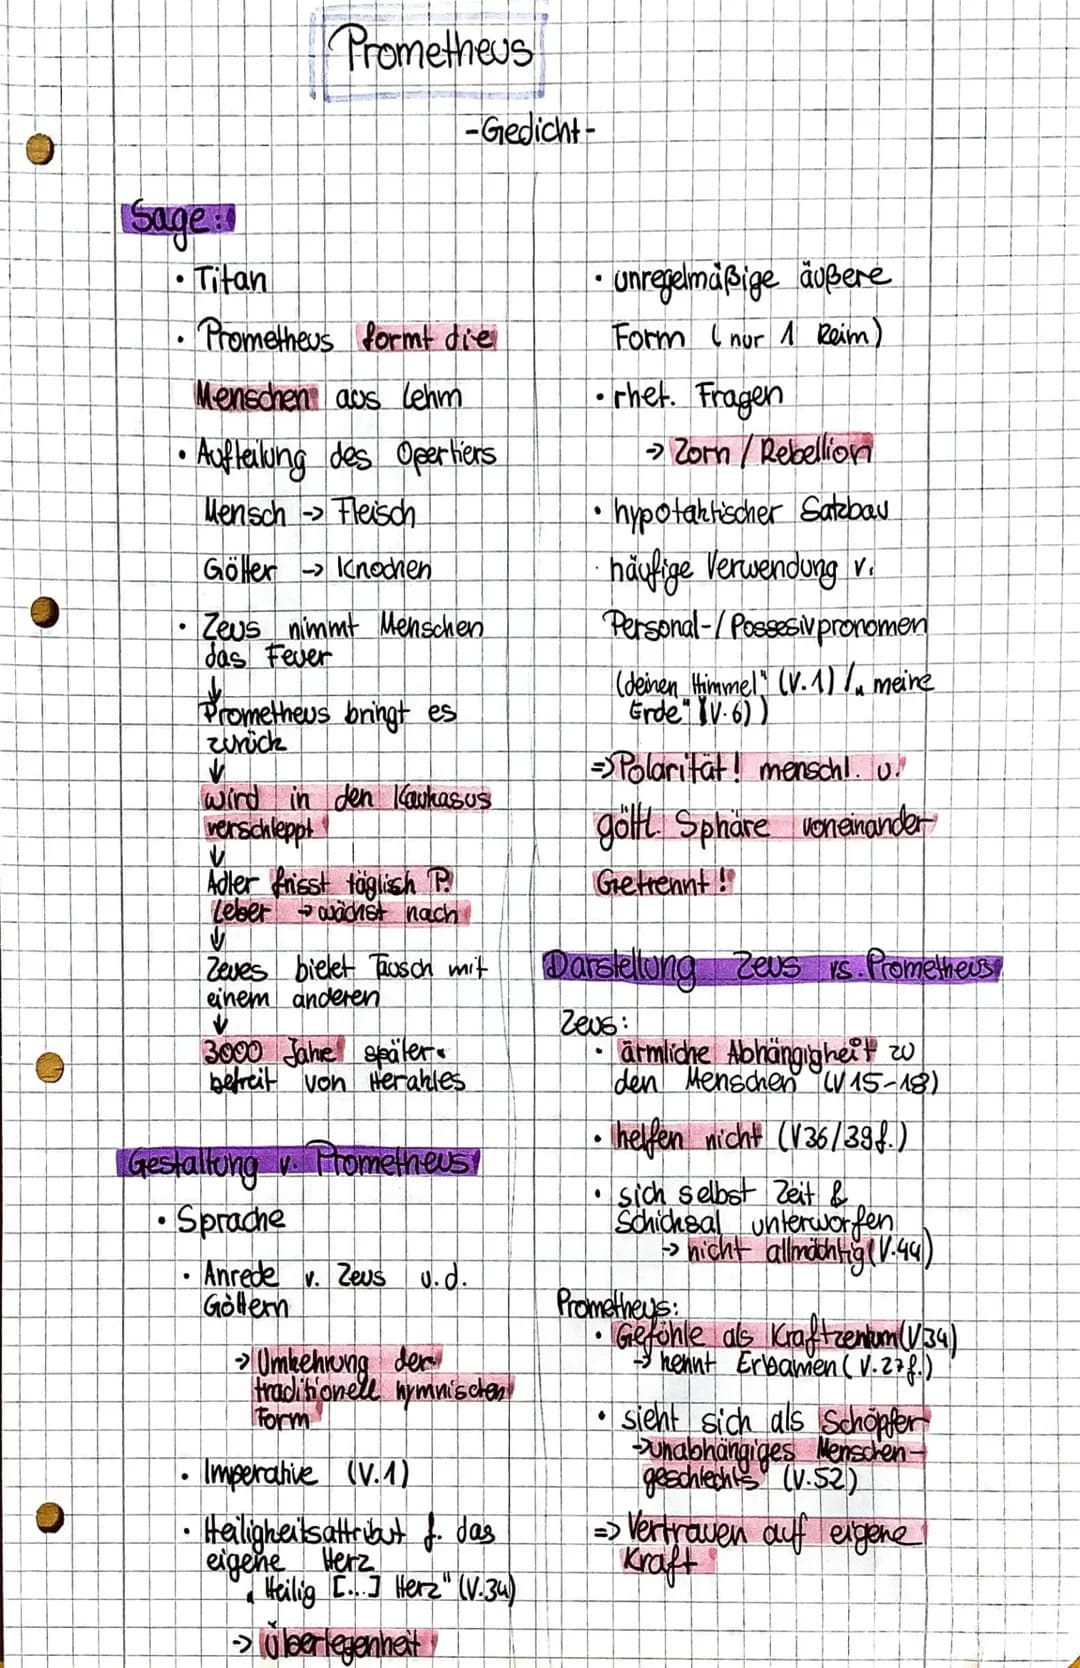 Prometheus
-Gedicht-
Sage:
• Titan
• Prometheus formt die
Menschen aus Lehm
• Aufteilung des Opertiers
Mensch → Fleisch
Götter → Knochen
• Zeus nimmt Menschen
das Feuer
↓
Prometheus bringt es
zurück
↓
wird in den Kaukasus
verschleppt
↓
Adler frisst täglich P.
Leber → wächst nach
↓
Zeues bietet Tausch mit
einem anderen
↓
3000 Jahre später
befreit von Herakles
Gestaltung v. Prometheus
• Sprache
• Anrede v. Zeus u.d.
Göttern
→ Umkehrung der
traditionell hymnischen
Form
• Imperative (V.1)
• Heiligheitsattribut f. das
eigene Herz
„Heilig [...] Herz" (V.34)
→ Überlegenheit
• unregelmäßige äußere
Form (nur 1 Reim)
• rhet. Fragen
→ Zorn / Rebellion
• hypotaktischer Satzbau
• häufige Verwendung v.
Personal-/Possesivpronomen
(deinen Himmel" (V.1) /„ meine
Erde" (V.6))
=> Polarität! menschl. u.
göttl. Sphäre voneinander
Getrennt!
Darstellung Zeus vs. Prometheus
Zeus:
• ärmliche Abhängigkeit zu
den Menschen (V15-18)
• helfen nicht (V36/39f.)
• sich selbst Zeit &
Schicksal unterworfen
→ nicht allmächtig (V.44)
Prometheus:
• Gefühle als Kraftzentum (V34)
→ kennt Erbamen (V.27f.)
• sieht sich als Schöpfer
→ unabhängiges Menschen-
geschlechts (V.52)
=> Vertrauen auf eigene
Kraft